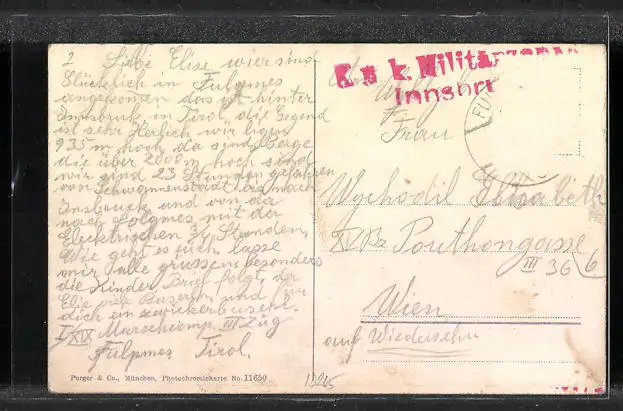 2 Liebe Elise wier sind
Glücklich in Fulpmes
angekomen das ist hinter
Innsbruk in Tirol, die Gegend
ist sehr Herlich wir ligen
935 m hoch da sind Berge
die über 2000 m hoch sind
wir sind 23 Stunden gefahren
von Schwannenstadt bis nach
Insbruck und von da
nach Folpmes mit der
Elecktrischen Stunden,
Wie geht es euch lasse
mir alle grüssen besonders
die Kinder, Brief folgt, der
Elie viele Busserln und für
dich ein zwickerbusserl.
I/XIX Marschkomp. III Zug
Fulpmes Tirol.
Purger & Co., München, Photochromiekarte No. 11650
K. u. k. Militärzensur
Innsbru
FU
Frau
Wychodil Elisabeth
XV Bz Pouthongasse
III 36 6
Wien
auf Wiedersehn